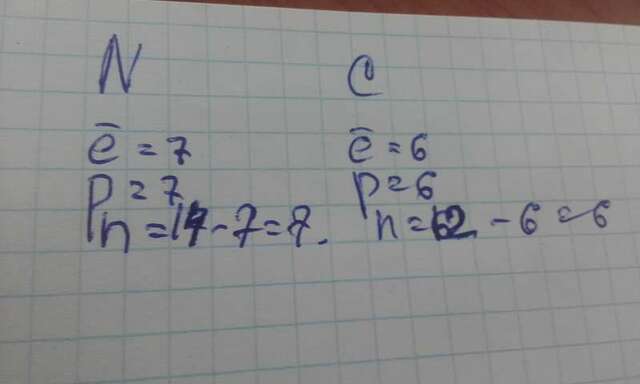 N
ē = 7
p = 7
n = 14 - 7 = 7.
C
ē = 6
p = 6
n = 12 - 6 = 6